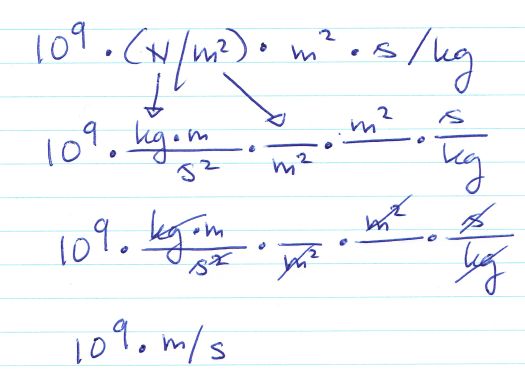 10⁹ · (N/m²) · m² · s/kg
10⁹ · kg·m/s² · /m² · m²/ · s/kg
10⁹ · kg·m/s² · /m² · m²/ · s/kg
10⁹ · m/s